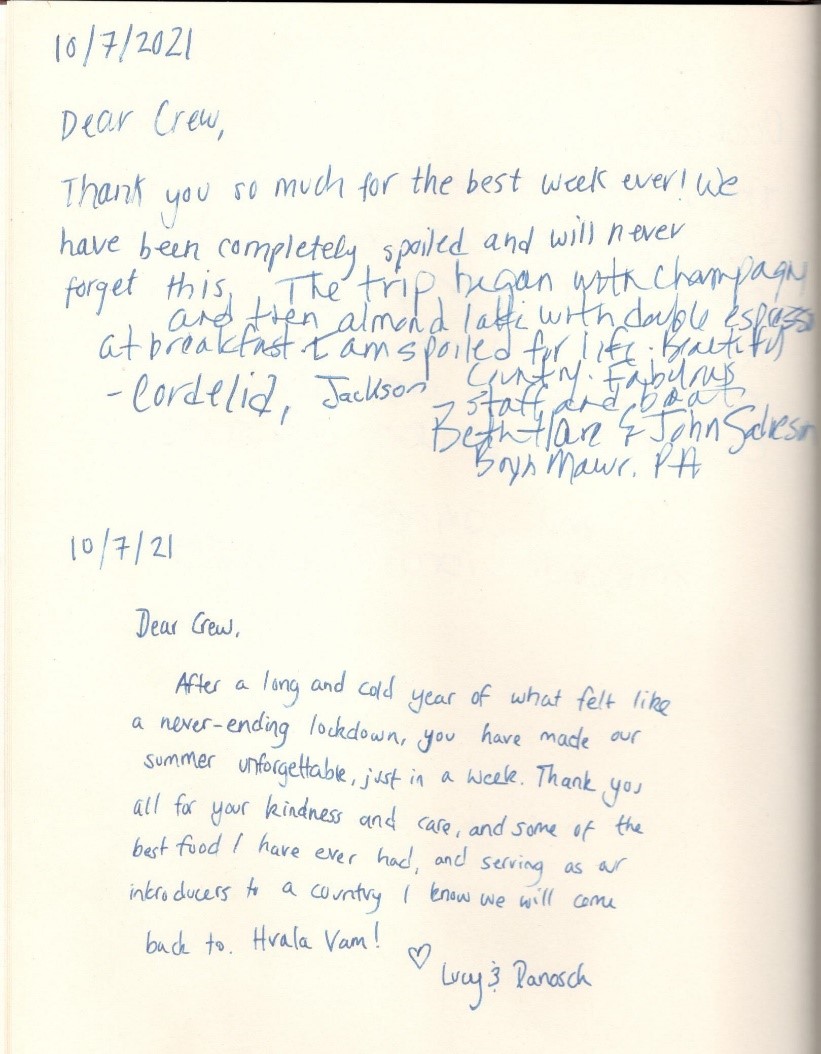 10/7/2021
Dear Crew,
Thank you so much for the best week ever! We
have been completely spoiled and will never
forget this. The trip began with champagn
and then almond latti with double
at breakfast I am spoiled for life. Beautiful
Country. Fabulous
- Cordelia, Jackson
staff and boat
Beth Hare & John
Bryn Mawr. PA
10/7/21
Dear Crew,
After a long and cold year of what felt like
a never-ending lockdown, you have made our
summer unforgettable, just in a week. Thank you
all for your kindness and care, and some of the
best food I have ever had, and serving as our
introducers to a country I know we will come
back to. Hvala Vam!
♡ Lucy &